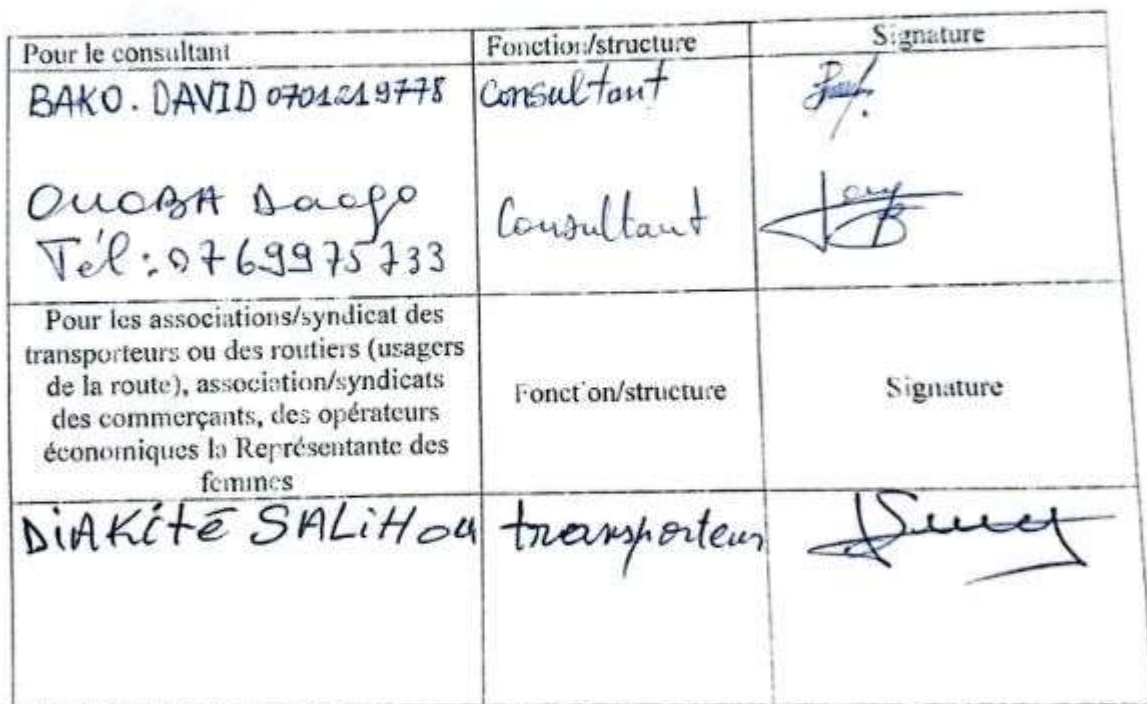 Pour le consultant Fonction/structure Signature
BAKO. DAVID 0701219778 Consultant
OUOBA Daogo Consultant
Tél: 0769975733
Pour les associations/syndicat des
transporteurs ou des routiers (usagers
de la route), association/syndicats
des commerçants, des opérateurs
économiques la Représentante des
femmes
Fonction/structure
Signature
DIAKITÉ SALIHOU transporteur